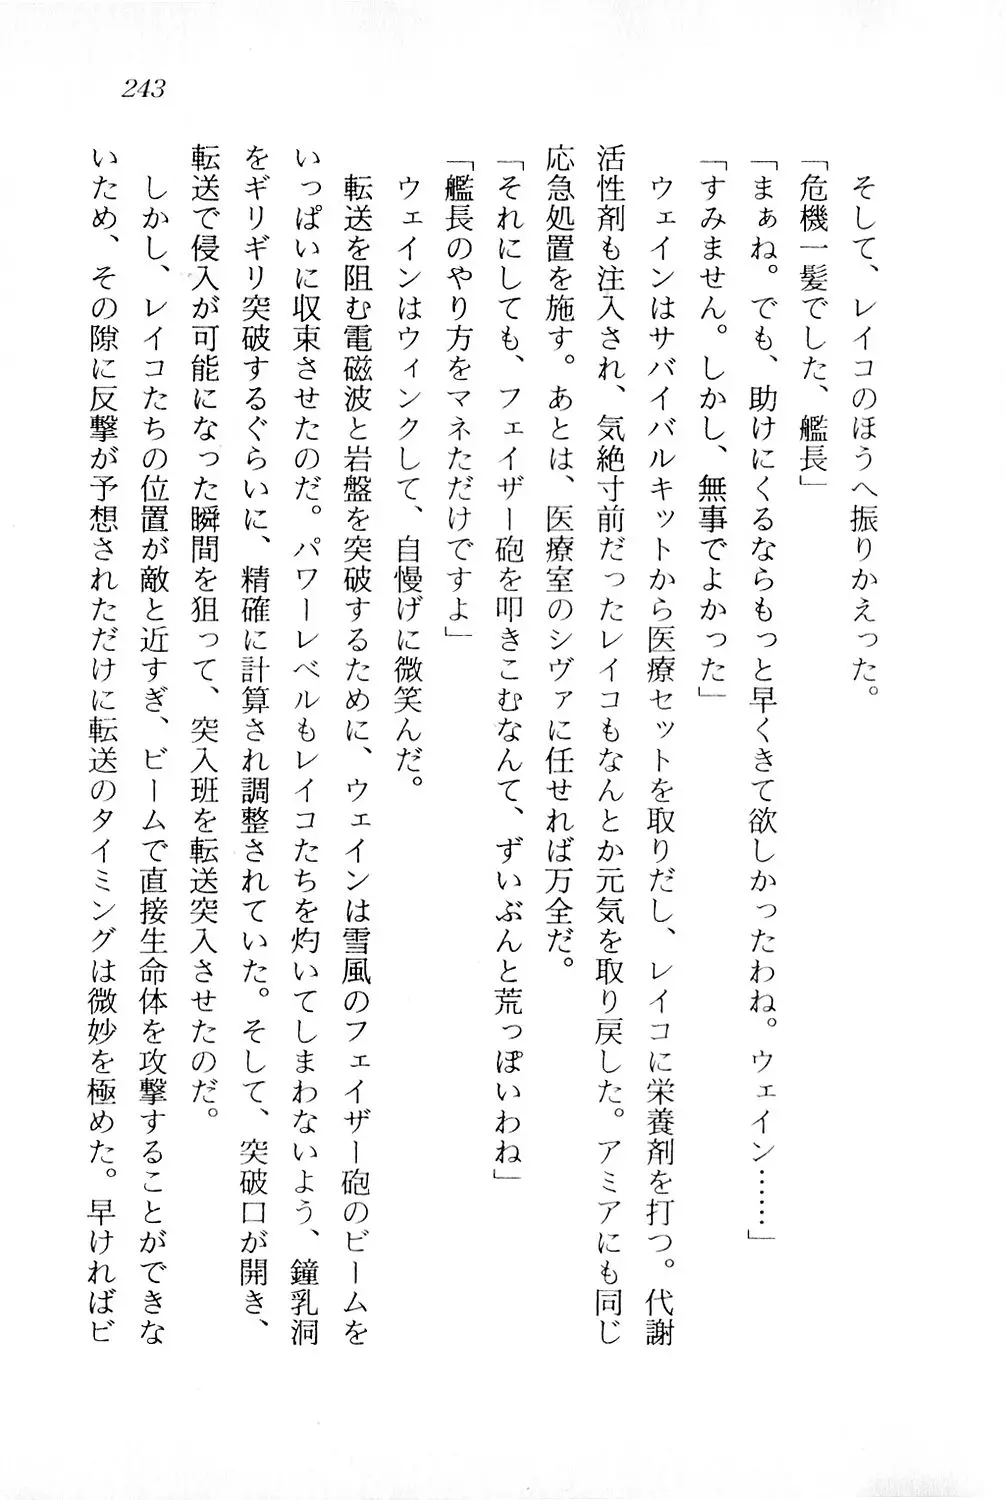 243
そして、レイコのほうへ振りかえった。
「危機一髪でした、艦長」
「まぁね。でも、助けにくるならもっと早くきて欲しかったわね。ウェイン……」
「すみません。しかし、無事でよかった」
ウェインはサバイバルキットから医療セットを取りだし、レイコに栄養剤を打つ。代謝
活性剤も注入され、気絶寸前だったレイコもなんとか元気を取り戻した。アミアにも同じ
応急処置を施す。あとは、医療室のシヴァに任せれば万全だ。
「それにしても、フェイザー砲を叩きこむなんて、ずいぶんと荒っぽいわね」
「艦長のやり方をマネただけですよ」
ウェインはウィンクして、自慢げに微笑んだ。
転送を阻む電磁波と岩盤を突破するために、ウェインは雪風のフェイザー砲のビームを
いっぱいに収束させたのだ。パワーレベルもレイコたちを灼いてしまわないよう、鐘乳洞
をギリギリ突破するぐらいに、精確に計算され調整されていた。そして、突破口が開き、
転送で侵入が可能になった瞬間を狙って、突入班を転送突入させたのだ。
しかし、レイコたちの位置が敵と近すぎ、ビームで直接生命体を攻撃することができな
いため、その隙に反撃が予想されただけに転送のタイミングは微妙を極めた。早ければビ